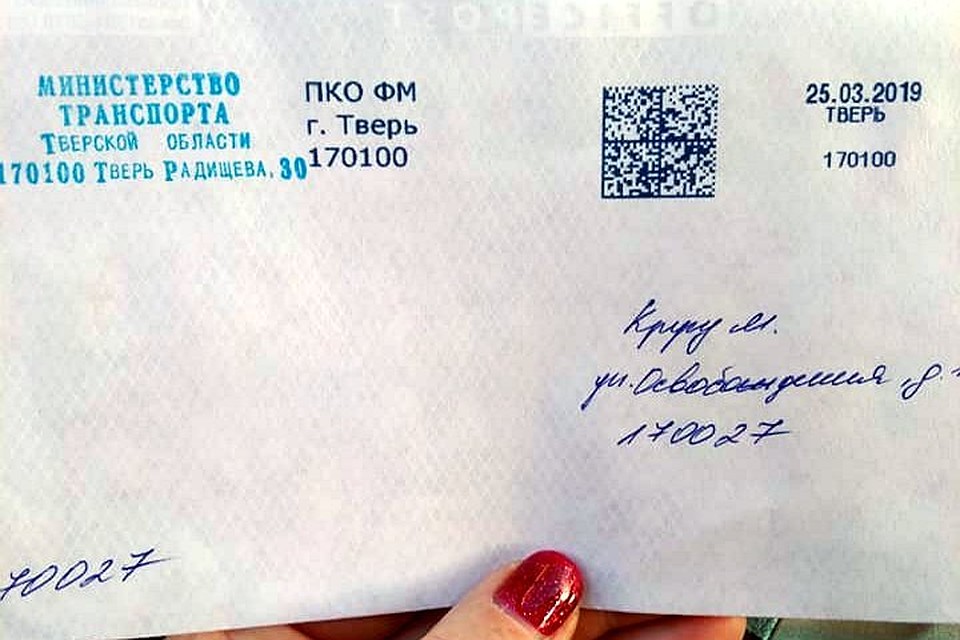 МИНИСТЕРСТВО
ТРАНСПОРТА
ТВЕРСКОЙ ОБЛАСТИ
170100 ТВЕРЬ РАДИЩЕВА, 30
ПКО ФМ
г. Тверь
170100
25.03.2019
ТВЕРЬ
170100
Круру М.
ул. Освобождения, д.
170027
70027